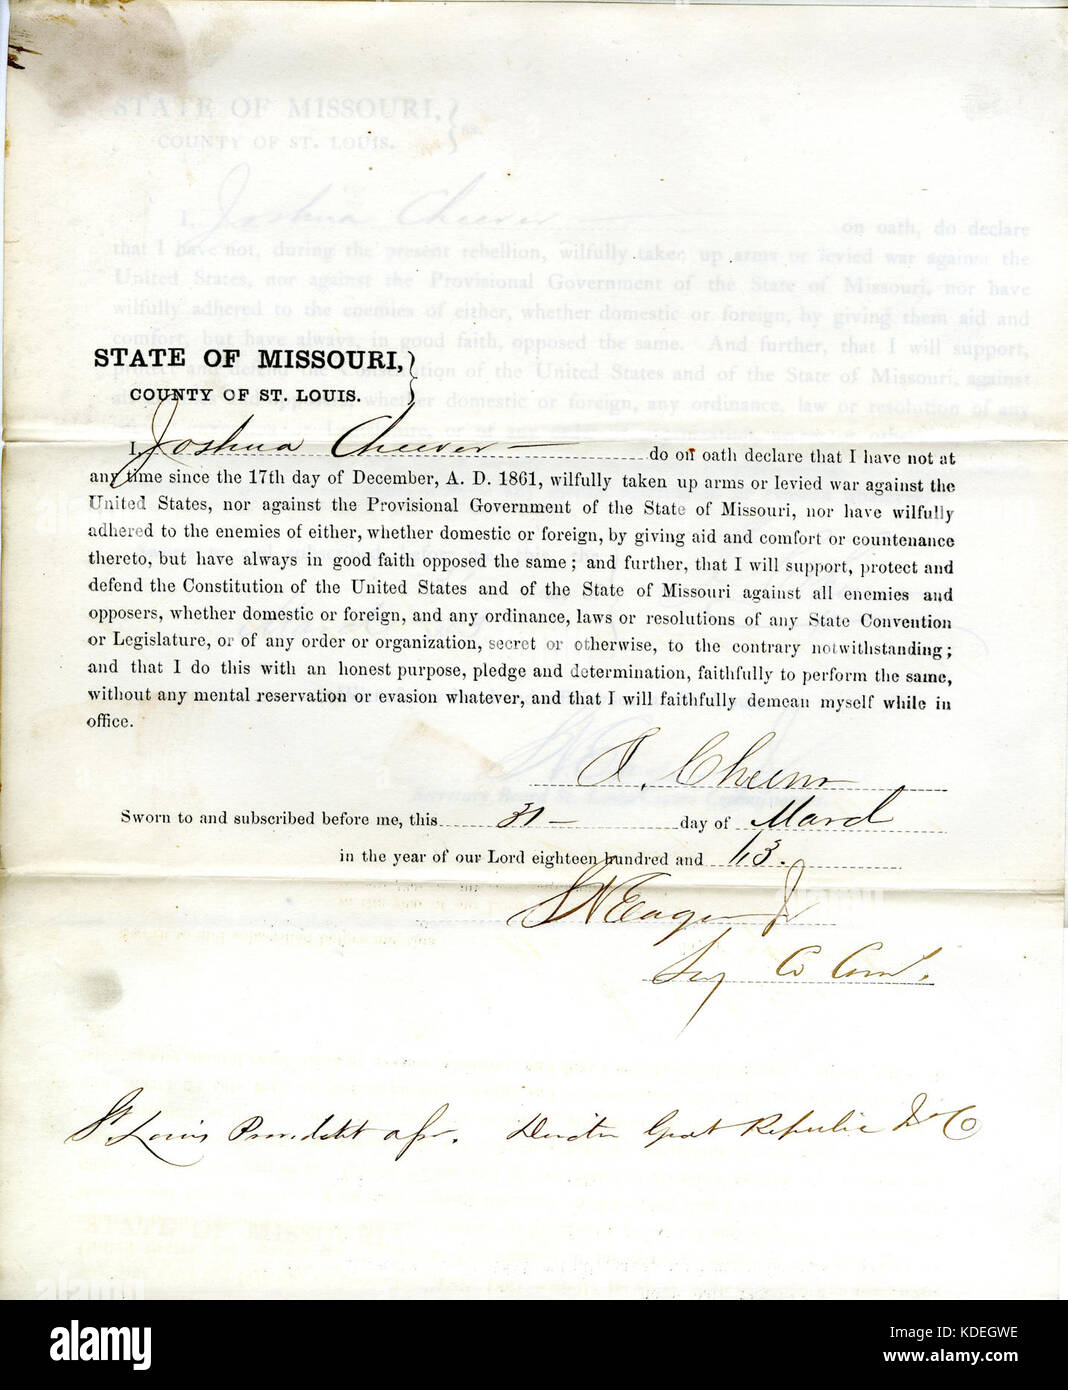 STATE OF MISSOURI,
COUNTY OF ST. LOUIS.
I, Joshua Cheever do on oath declare that I have not at
any time since the 17th day of December, A. D. 1861, wilfully taken up arms or levied war against the
United States, nor against the Provisional Government of the State of Missouri, nor have wilfully
adhered to the enemies of either, whether domestic or foreign, by giving aid and comfort or countenance
thereto, but have always in good faith opposed the same; and further, that I will support, protect and
defend the Constitution of the United States and of the State of Missouri against all enemies and
opposers, whether domestic or foreign, and any ordinance, laws or resolutions of any State Convention
or Legislature, or of any order or organization, secret or otherwise, to the contrary notwithstanding;
and that I do this with an honest purpose, pledge and determination, faithfully to perform the same,
without any mental reservation or evasion whatever, and that I will faithfully demean myself while in
office.
J. Cheever
Sworn to and subscribed before me, this 31 day of March
in the year of our Lord eighteen hundred and 63.
Eager Jr
Co Com.
St Louis Director Great Republic Co
alamy
Image ID: KDEGWE
www.alamy.com